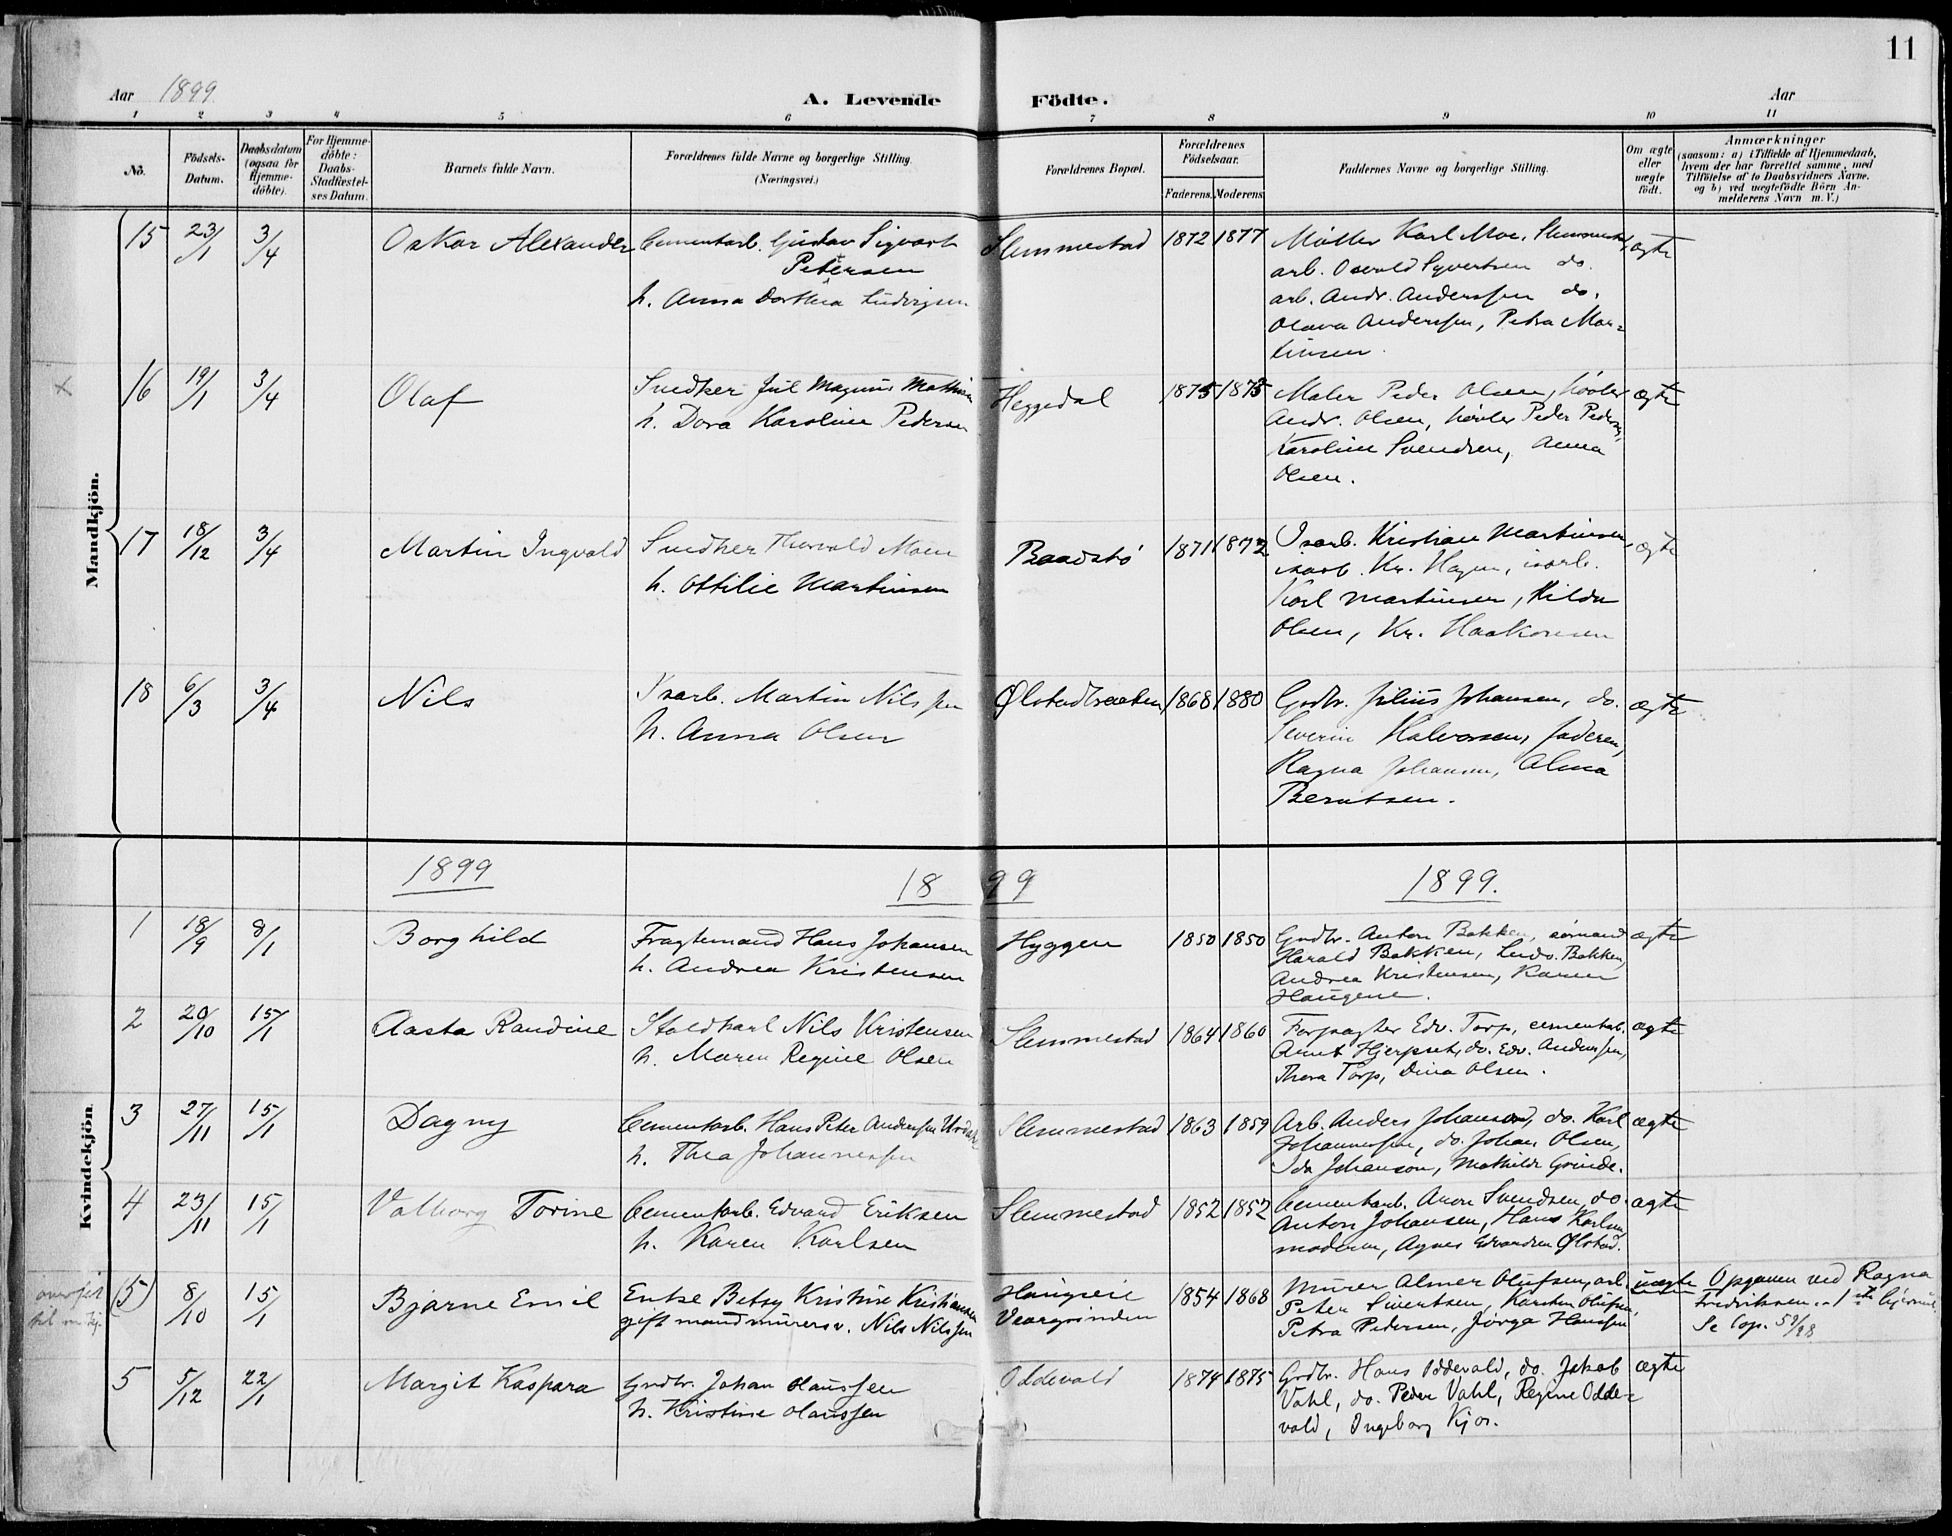 11
Aar 1899.
A. Levende Födte.
Aar
1 2 3 4 5 6 7 8 9 10 11
No.
Födsels-
Datum.
Daabsdatum
(ogsaa for
Hjemme-
döbte).
For Hjemme-
döbte:
Daabs-
Stadfæstel-
ses Datum.
Barnets fulde Navn.
Forældrenes fulde Navne og borgerlige Stilling.
(Næringsvei.)
Forældrenes Bopæl.
Forældrenes
Födselsaar.
Faderens. Moderens.
Faddernes Navne og borgerlige Stilling.
Om ægte
eller
uægte
födt.
Anmærkninger
(saasom: a) i Tilfælde af Hjemmedaab,
hvem der har forrettet samme, med
Tilföielse af to Daabsvidners Navne,
og b) ved uægtefödte Börn An-
melderens Navn m. V.)
Mandkjön.
15 23/1 3/4 Oskar Alexander
Cementarb. Gustav Sigvart
Petersen
h. Anna Dorthea Ludvigsen
Slemmestad 1872 1877
Møller Karl Moe, Slemmestad,
arb. Osvald Syvertsen do.
arb. Andr. Anderssen do.
Olava Anderssen, Petra Mar-
tinsen.
ægte
x 16 19/1 3/4 Olaf
Snedker Jul Magnus Mathisen
h. Dora Karoline Pedersen
Heggedal 1875 1875
Maler Peder Olsen, høvler
Andr. Olsen, høvler Peder Pedersen,
Karoline Svendsen, Anna
Olsen.
ægte
17 18/12 3/4 Martin Ingvald
Snedker Thorvald Moen
h. Ottilie Martinsen
Baadstø 1871 1872
Isarb. Kristian Martinsen,
isarb. Kr. Hagen, isarb.
Karl Martinsen, Hilda
Olsen, Kr. Haakonsen
ægte
18 6/3 3/4 Nils
Isarb. Martin Nilssen
h. Anna Olsen
Ølstadbraaten 1868 1880
Grdbr. Julius Johansen, do.
Severin Halvorsen, faderen,
Ragna Johansen, Alma
Berntsen.
ægte
1899 1899 1899.
Kvindekjön.
1 18/9 8/1 Borghild
Fragtemand Hans Johansen
h. Andrea Kristensen
Hyggen 1850 1850
Grdbr. Anton Bakken, sømand
Harald Bakken, Ludv. Bakken,
Andrea Kristensen, Karen
Haugene.
ægte
2 20/10 15/1 Aasta Randine
Staldkarl Nils Kristensen
h. Maren Regine Olsen
Slemmestad 1864 1860
Forpagter Edv. Torp, cementarb.
Arnt Hjerpset, do. Edv. Anderssen,
Thora Torp, Dina Olsen.
ægte
3 27/11 15/1 Dagny
Cementarb. Hans Peter Anderssen
h. Thea Johannessen
Slemmestad 1863 1859
Arb. Anders Johansen, do. Karl
Johannessen, do. Johan Olsen,
Ida Johansen, Mathilde Grinde.
ægte
4 23/11 15/1 Valborg Torine
Cementarb. Edvard Eriksen
h. Karen Karlsen
Slemmestad 1852 1852
Cementarb. Aron Svendsen, do.
Anton Johansen, Hans Karlsen,
moderen, Agnes Edvardsen Ølstad.
ægte
overført
til
(5) 8/10 15/1 Bjarne Emil
Enke Betsy Kristine Kristiansen
gift mand murersv. Nils Nilssen
Haugseie
1854 1868
Murer Almer Olufsen, arb.
Peter Sivertsen, Karsten Olufsen,
Petra Pedersen, Jørga Hanssen
uægte
Opgaven ved Ragna
Fredriksen. 1ste
Se Cop. 52/98
5 5/12 22/1 Margit Kaspara
Grdbr. Johan Olaussen
h. Kristine Olaussen
Oddevald 1874 1875
Grdbr. Hans Oddevald, do. Jakob
Vahl, do. Peder Vahl, Regine Odde-
vald, Ingeborg Kjos.
ægte